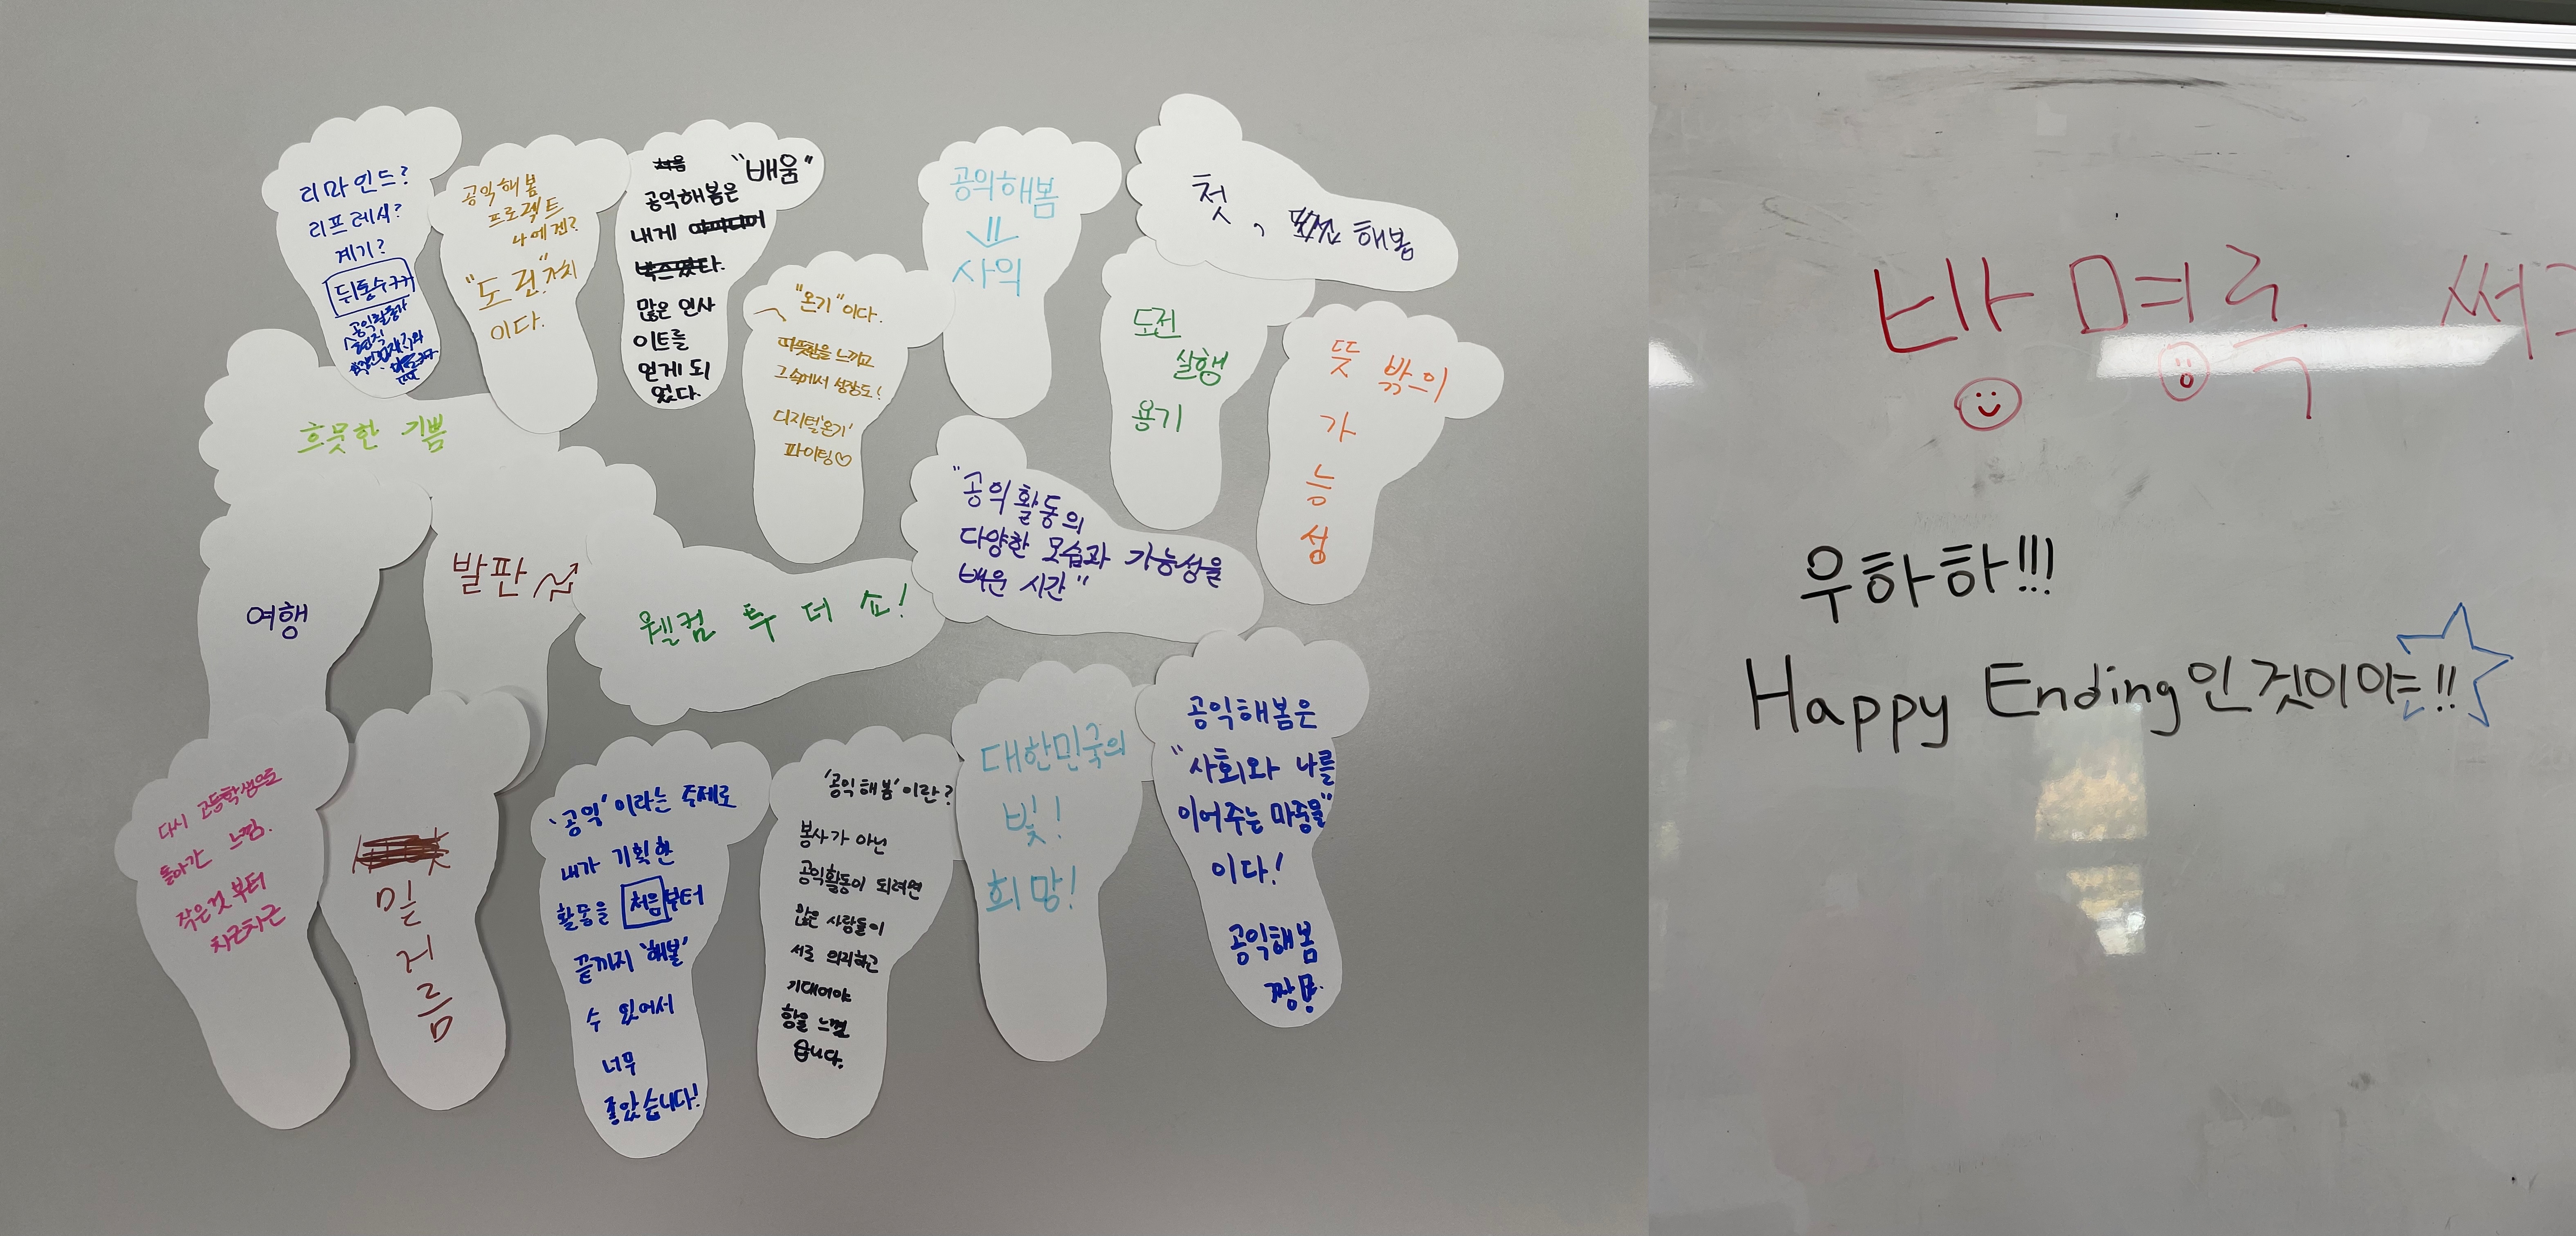 리마인드?
리프레시?
계기?
공익활동가
공익해봄
프로젝트
나에겐?
"도전"
이다.
"배움"
공익해봄은
내게
많은 인사
이트를
얻게 되
었다.
"온기"이다.
따뜻함을 느끼고
그 속에서 성장도!
디지털'온기'
파이팅♡
공익해봄
사의
첫, 해봄
도전
실행
용기
뜻밖의
가
능
성
흐뭇한 기쁨
여행
발판
웰컴 투 더 쇼!
"공익활동의
다양한 모습과 가능성을
배운 시간"
다시 고등학생으로
돌아간 느낌.
작은것 부터
차근차근
밑
거
름
'공익'이라는 주제로
내가 기획한
활동을 처음부터
끝까지 '해볼'
수 있어서
너무
좋았습니다!
'공익해봄'이란?
봉사가 아닌
공익활동이 되려면
많은 사람들이
서로 의지하고
기대어야
함을 느꼈
습니다.
대한민국의
빛!
희망!
공익해봄은
"사회와 나를
이어주는 마중물"
이다!
공익해봄
짱!
방명록
우하하!!!
Happy Ending인 것이야!!